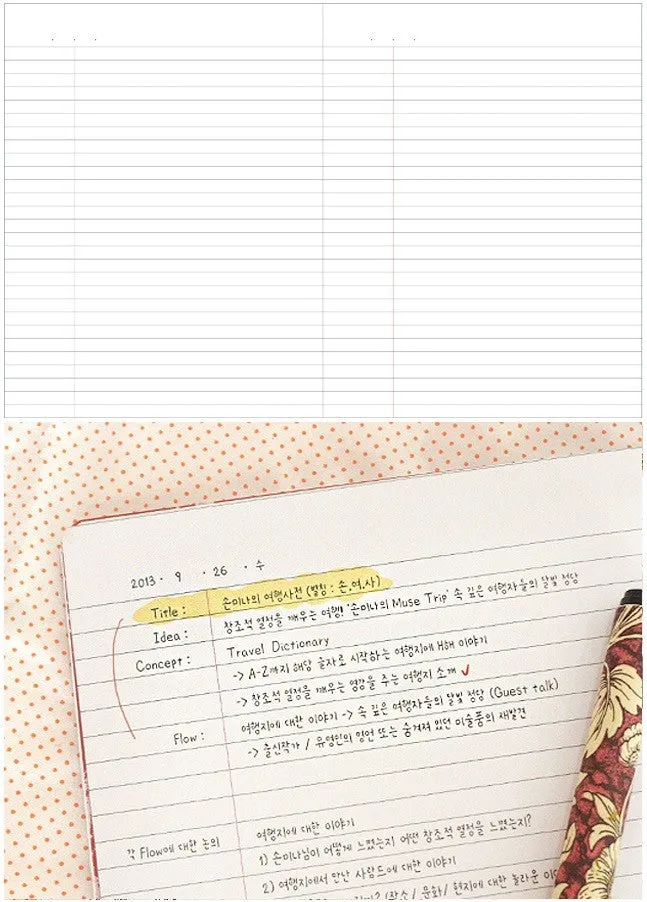 2013 · 9 · 26 · 수
Title : 손미나의 여행사전 (별칭 : 손.여.사)
Idea : 창조적 열정을 깨우는 여행! '손미나의 Muse Trip' 속 깊은 여행자들의 달빛 정담
Concept : Travel Dictionary
-> A-Z까지 해당 글자로 시작하는 여행지에 이야기
-> 창조적 열정을 깨우는 영감을 주는 여행지 소개 ✓
Flow : 여행지에 대한 이야기 -> 속 깊은 여행자들의 달빛 정담 (Guest talk)
-> 출신작가 / 유명인의 명언 또는 숨겨져 있던 미술품의 재발견
각 Flow에 대한 논의 여행지에 대한 이야기
1) 손미나님이 어떻게 느꼈는지 어떤 창조적 열정을 느꼈는지?
2) 여행지에서 만난 사람드에 대한 이야기
문화 / 현지에 대한 놀라운